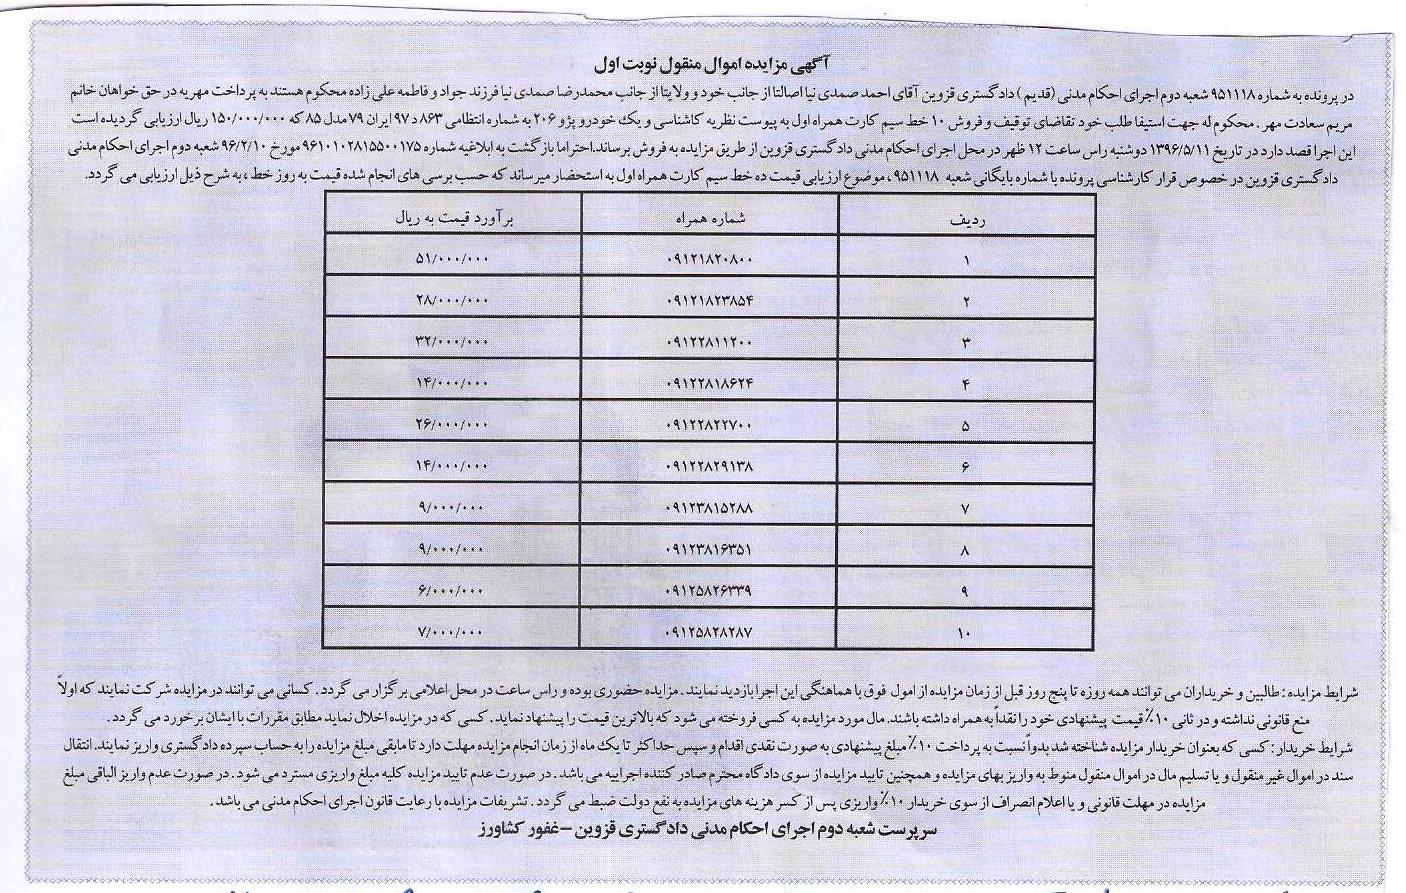 آگهی مزایده اموال منقول نوبت اول
در پرونده به شماره ۹۵۱۱۱۸ شعبه دوم اجرای احکام مدنی (قدیم) دادگستری قزوین آقای احمد صمدی نیا اصالتا از جانب خود و ولایتا از جانب محمدرضا صمدی نیا فرزند جواد و فاطمه علی زاده محکوم هستند به پرداخت مهریه در حق خواهان خانم
مریم سعادت مهر . محکوم له جهت استیفا طلب خود تقاضای توقیف و فروش ۱۰ خط سیم کارت همراه اول به پیوست نظریه کاشناسی و یک خودرو پژو ۲۰۶ به شماره انتظامی ۸۶۳ د ۹۷ ایران ۷۹ مدل ۸۵ که ۱۵۰/۰۰۰/۰۰۰ ریال ارزیابی گردیده است
این اجرا قصد دارد در تاریخ ۱۳۹۶/۵/۱۱ دوشنبه راس ساعت ۱۲ ظهر در محل اجرای احکام مدنی دادگستری قزوین از طریق مزایده به فروش برساند.احتراما بازگشت به ابلاغیه شماره ۹۶۱۰۱۰۲۸۱۵۵۰۰۱۷۵ مورخ ۹۶/۲/۱۰ شعبه دوم اجرای احکام مدنی
دادگستری قزوین در خصوص قرار کارشناسی پرونده با شماره بایگانی شعبه ۹۵۱۱۱۸ ، موضوع ارزیابی قیمت ده خط سیم کارت همراه اول به استحضار میرساند که حسب برسی های انجام شده قیمت به روز خط ، به شرح ذیل ارزیابی می گردد.
ردیف شماره همراه برآورد قیمت به ریال
۱ ۰۹۱۲۱۸۲۰۸۰۰ ۵۱/۰۰۰/۰۰۰
۲ ۰۹۱۲۱۸۲۳۸۵۴ ۲۸/۰۰۰/۰۰۰
۳ ۰۹۱۲۲۸۱۱۲۰۰ ۳۲/۰۰۰/۰۰۰
۴ ۰۹۱۲۲۸۱۸۶۲۴ ۱۴/۰۰۰/۰۰۰
۵ ۰۹۱۲۲۸۲۲۷۰۰ ۲۶/۰۰۰/۰۰۰
۶ ۰۹۱۲۲۸۲۹۱۳۸ ۱۴/۰۰۰/۰۰۰
۷ ۰۹۱۲۳۸۱۵۲۸۸ ۹/۰۰۰/۰۰۰
۸ ۰۹۱۲۳۸۱۶۳۵۱ ۹/۰۰۰/۰۰۰
۹ ۰۹۱۲۵۸۲۶۳۳۹ ۶/۰۰۰/۰۰۰
۱۰ ۰۹۱۲۵۸۲۸۲۸۷ ۷/۰۰۰/۰۰۰
شرایط مزایده : طالبین و خریداران می توانند همه روزه تا پنج روز قبل از زمان مزایده از امول فوق با هماهنگی این اجرا بازدید نمایند . مزایده حضوری بوده و راس ساعت در محل اعلامی برگزار می گردد . کسانی می توانند در مزایده شرکت نمایند که اولاً
منع قانونی نداشته و در ثانی ۱۰٪ قیمت پیشنهادی خود را نقداً به همراه داشته باشند. مال مورد مزایده به کسی فروخته می شود که بالاترین قیمت را پیشنهاد نماید . کسی که در مزایده اخلال نماید مطابق مقررات با ایشان برخورد می گردد .
شرایط خریدار : کسی که بعنوان خریدار مزایده شناخته شد بدواً نسبت به پرداخت ۱۰٪ مبلغ پیشنهادی به صورت نقدی اقدام و سپس حداکثر تا یک ماه از زمان انجام مزایده مهلت دارد تا مابقی مبلغ مزایده را به حساب سپرده دادگستری واریز نمایند. انتقال
سند در اموال غیر منقول و یا تسلیم مال در اموال منقول منوط به واریز بهای مزایده و همچنین تایید مزایده از سوی دادگاه محترم صادر کننده اجراییه می باشد . در صورت عدم تایید مزایده کلیه مبلغ واریزی مسترد می شود . در صورت عدم واریز الباقی مبلغ
مزایده در مهلت قانونی و یا اعلام انصراف از سوی خریدار ۱۰٪ واریزی پس از کسر هزینه های مزایده به نفع دولت ضبط می گردد . تشریفات مزایده با رعایت قانون اجرای احکام مدنی می باشد .
سرپرست شعبه دوم اجرای احکام مدنی دادگستری قزوین –غفور کشاورز